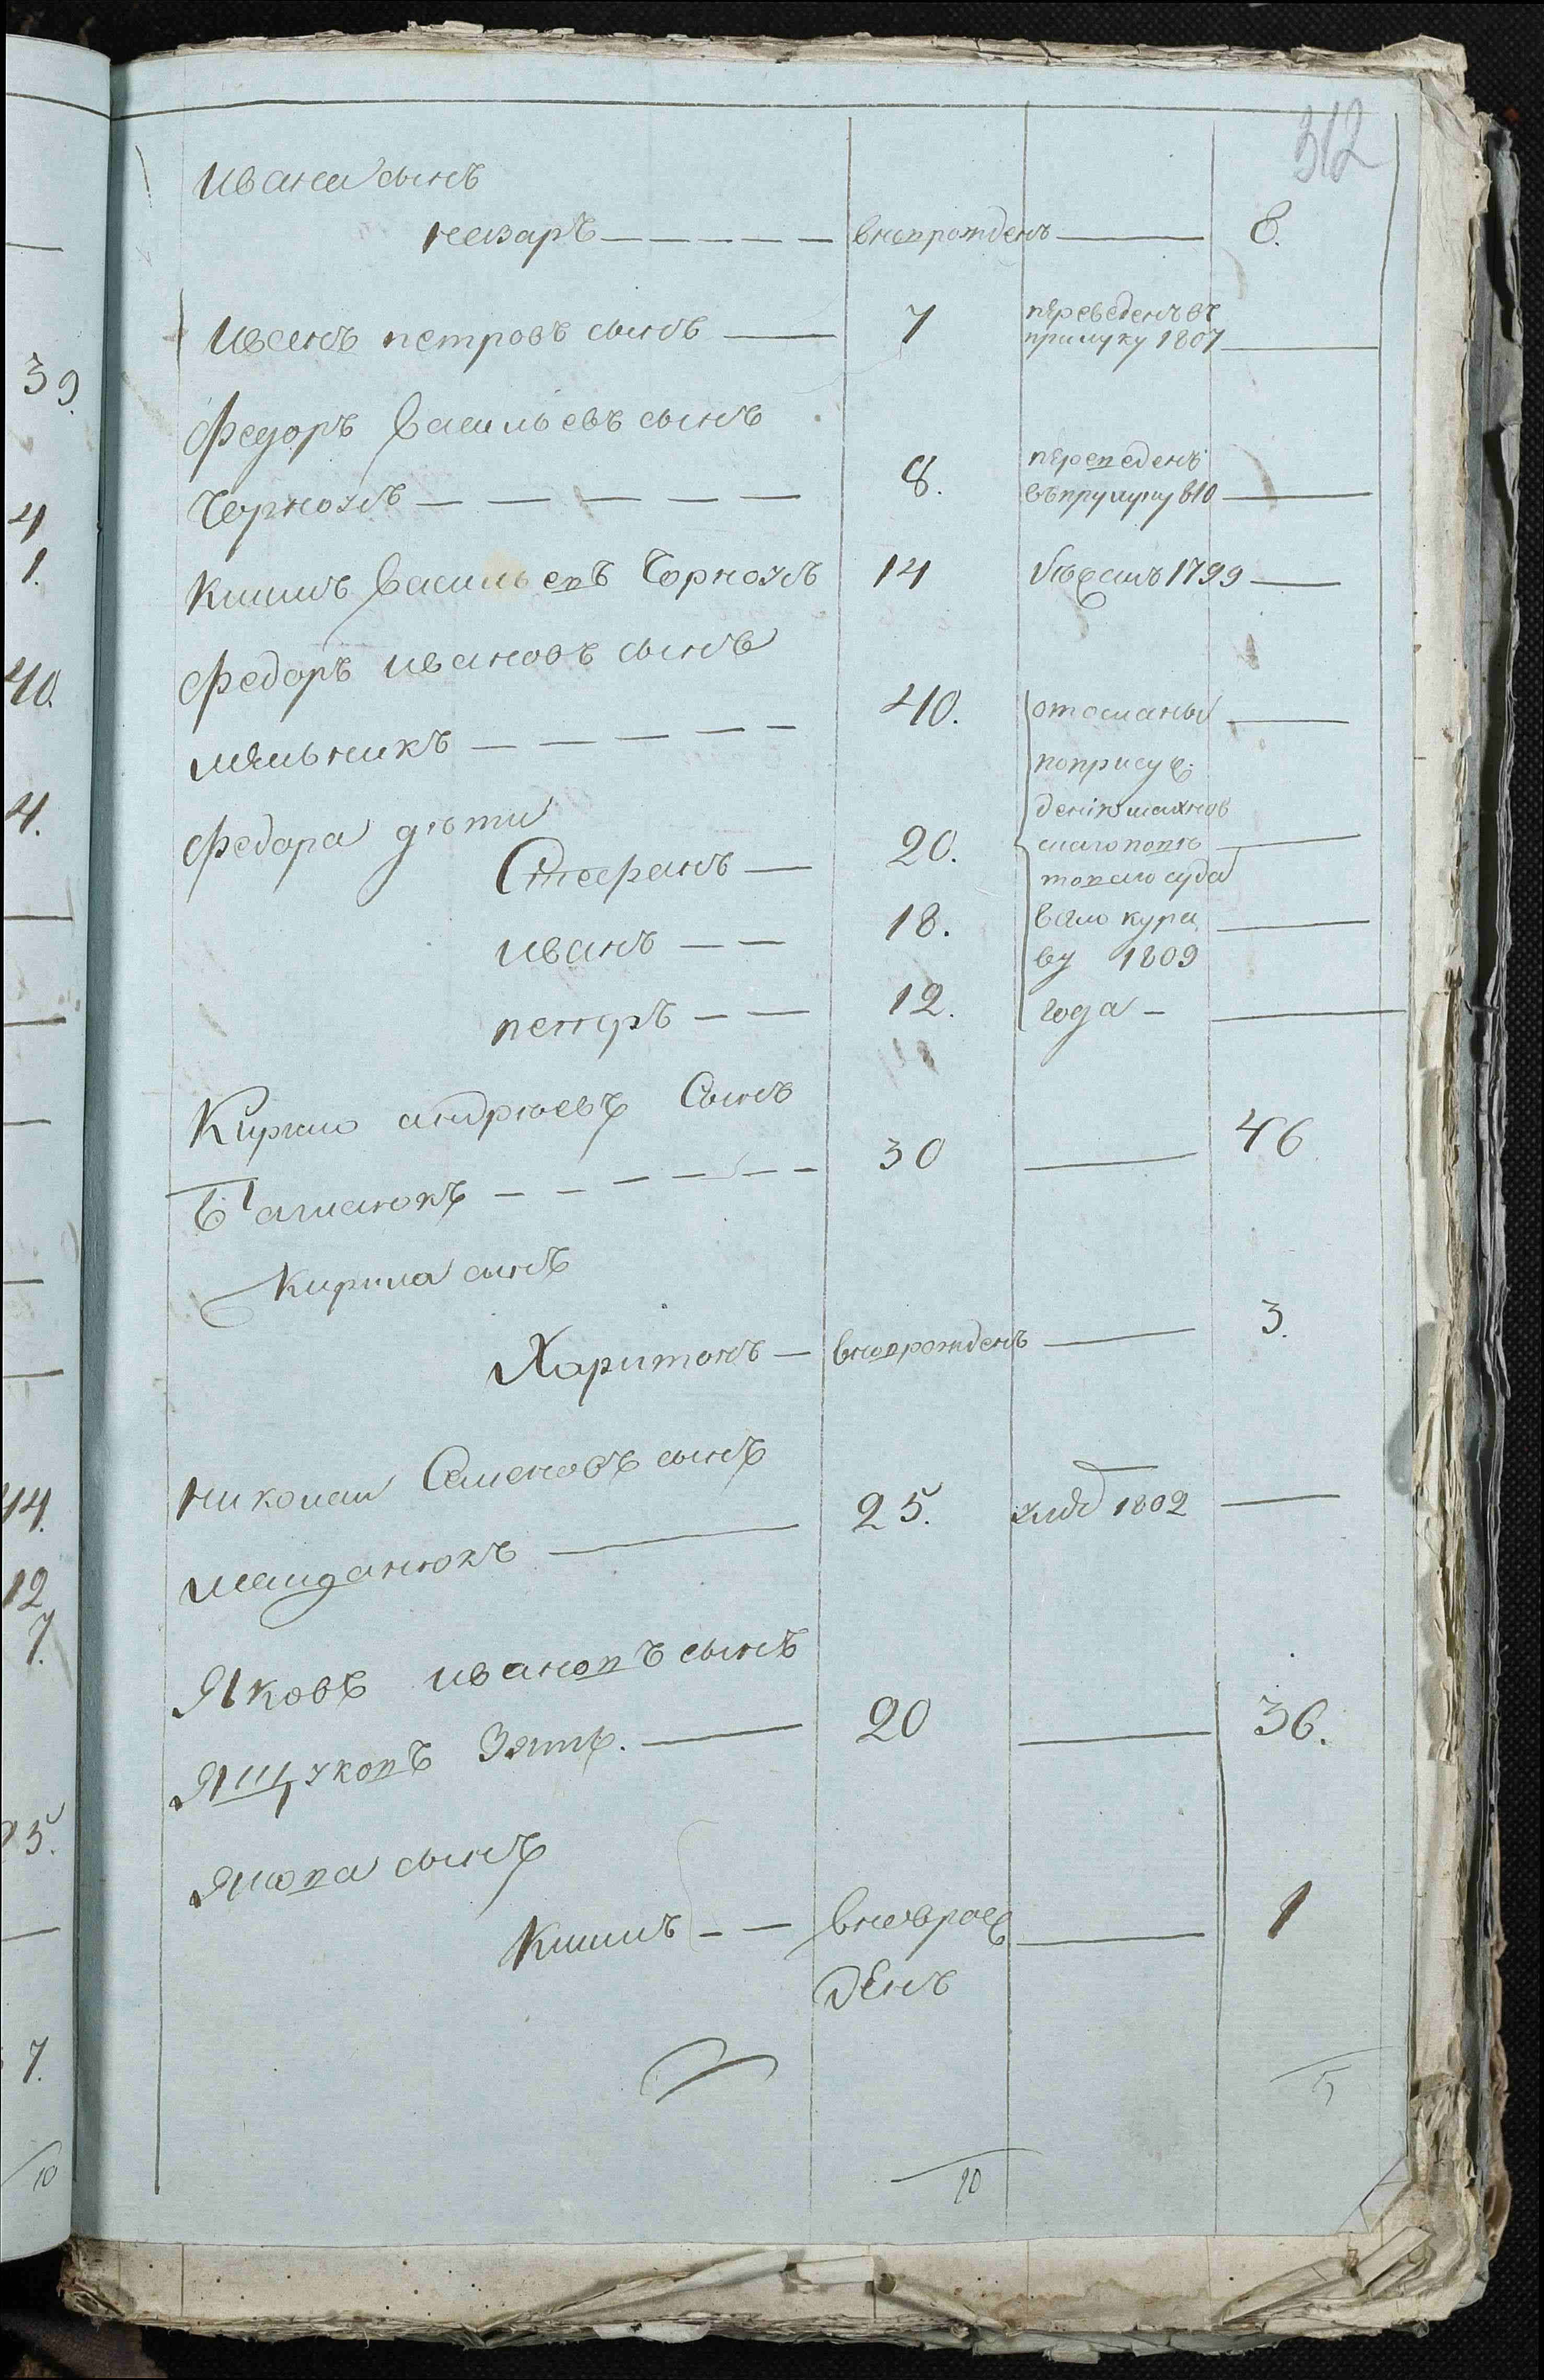 312
Ивана сынъ
назаръ — — — — — вновърожденъ — 8.
Иванъ петровъ сынъ — 7 переведенъ въ
прилуку 1807 —
Федоръ Васильевъ сынъ
Чорноусъ — — — — — 8. переведенъ
въ прилуку 810 —
Климъ Васильевъ Чорноусъ 14 1799 —
Федоръ ивановъ сынъ
мельникъ — — — — — 40. отосланы —
поприсуж
Федора дѣти дению махнов
Стефанъ — 20. скаго повѣ —
товаго суда
иванъ — — 18. —
1809
петръ — — 12. года — —
Кирило андреевъ Сынъ
— — — — — 30 — 46
Кирила сынъ
Харитонъ — вновърожденъ — 3.
николай Семеновъ сынъ
майданюкъ — 25. 1802 —
Яковъ ивановъ сынъ
Ящуковъ Зять. — 20 — 36.
Якова сынъ
Климъ — — вноврож — 1
денъ
5
10
39.
4
1.
40.
4.
44.
12
7.
5.
7.
10